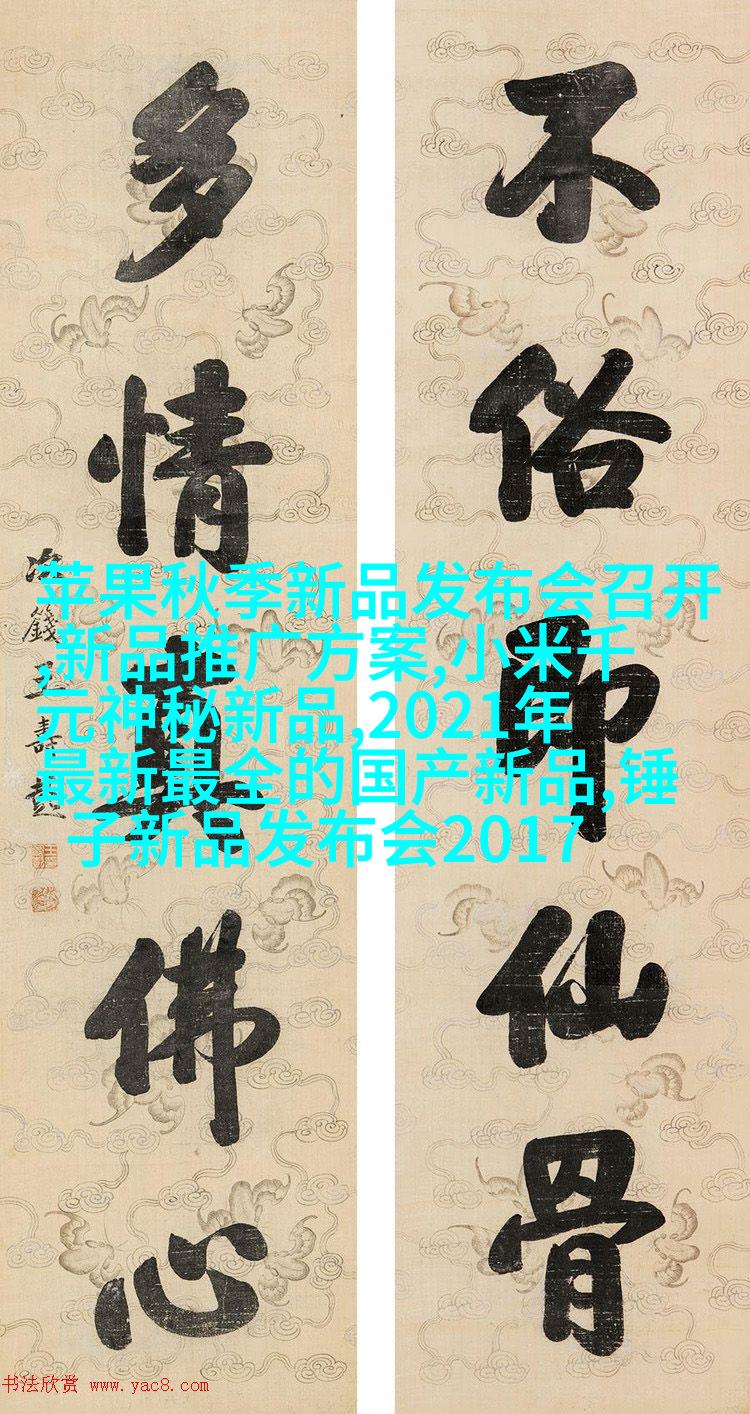 不俗即仙骨
多情真佛心
次籛王壽彭
苹果秋季新品发布会召开
,新品推广方案,小米千
元神秘新品,2021年
最新最全的国产新品,锤
子新品发布会2017
书法欣赏 www.yac8.com